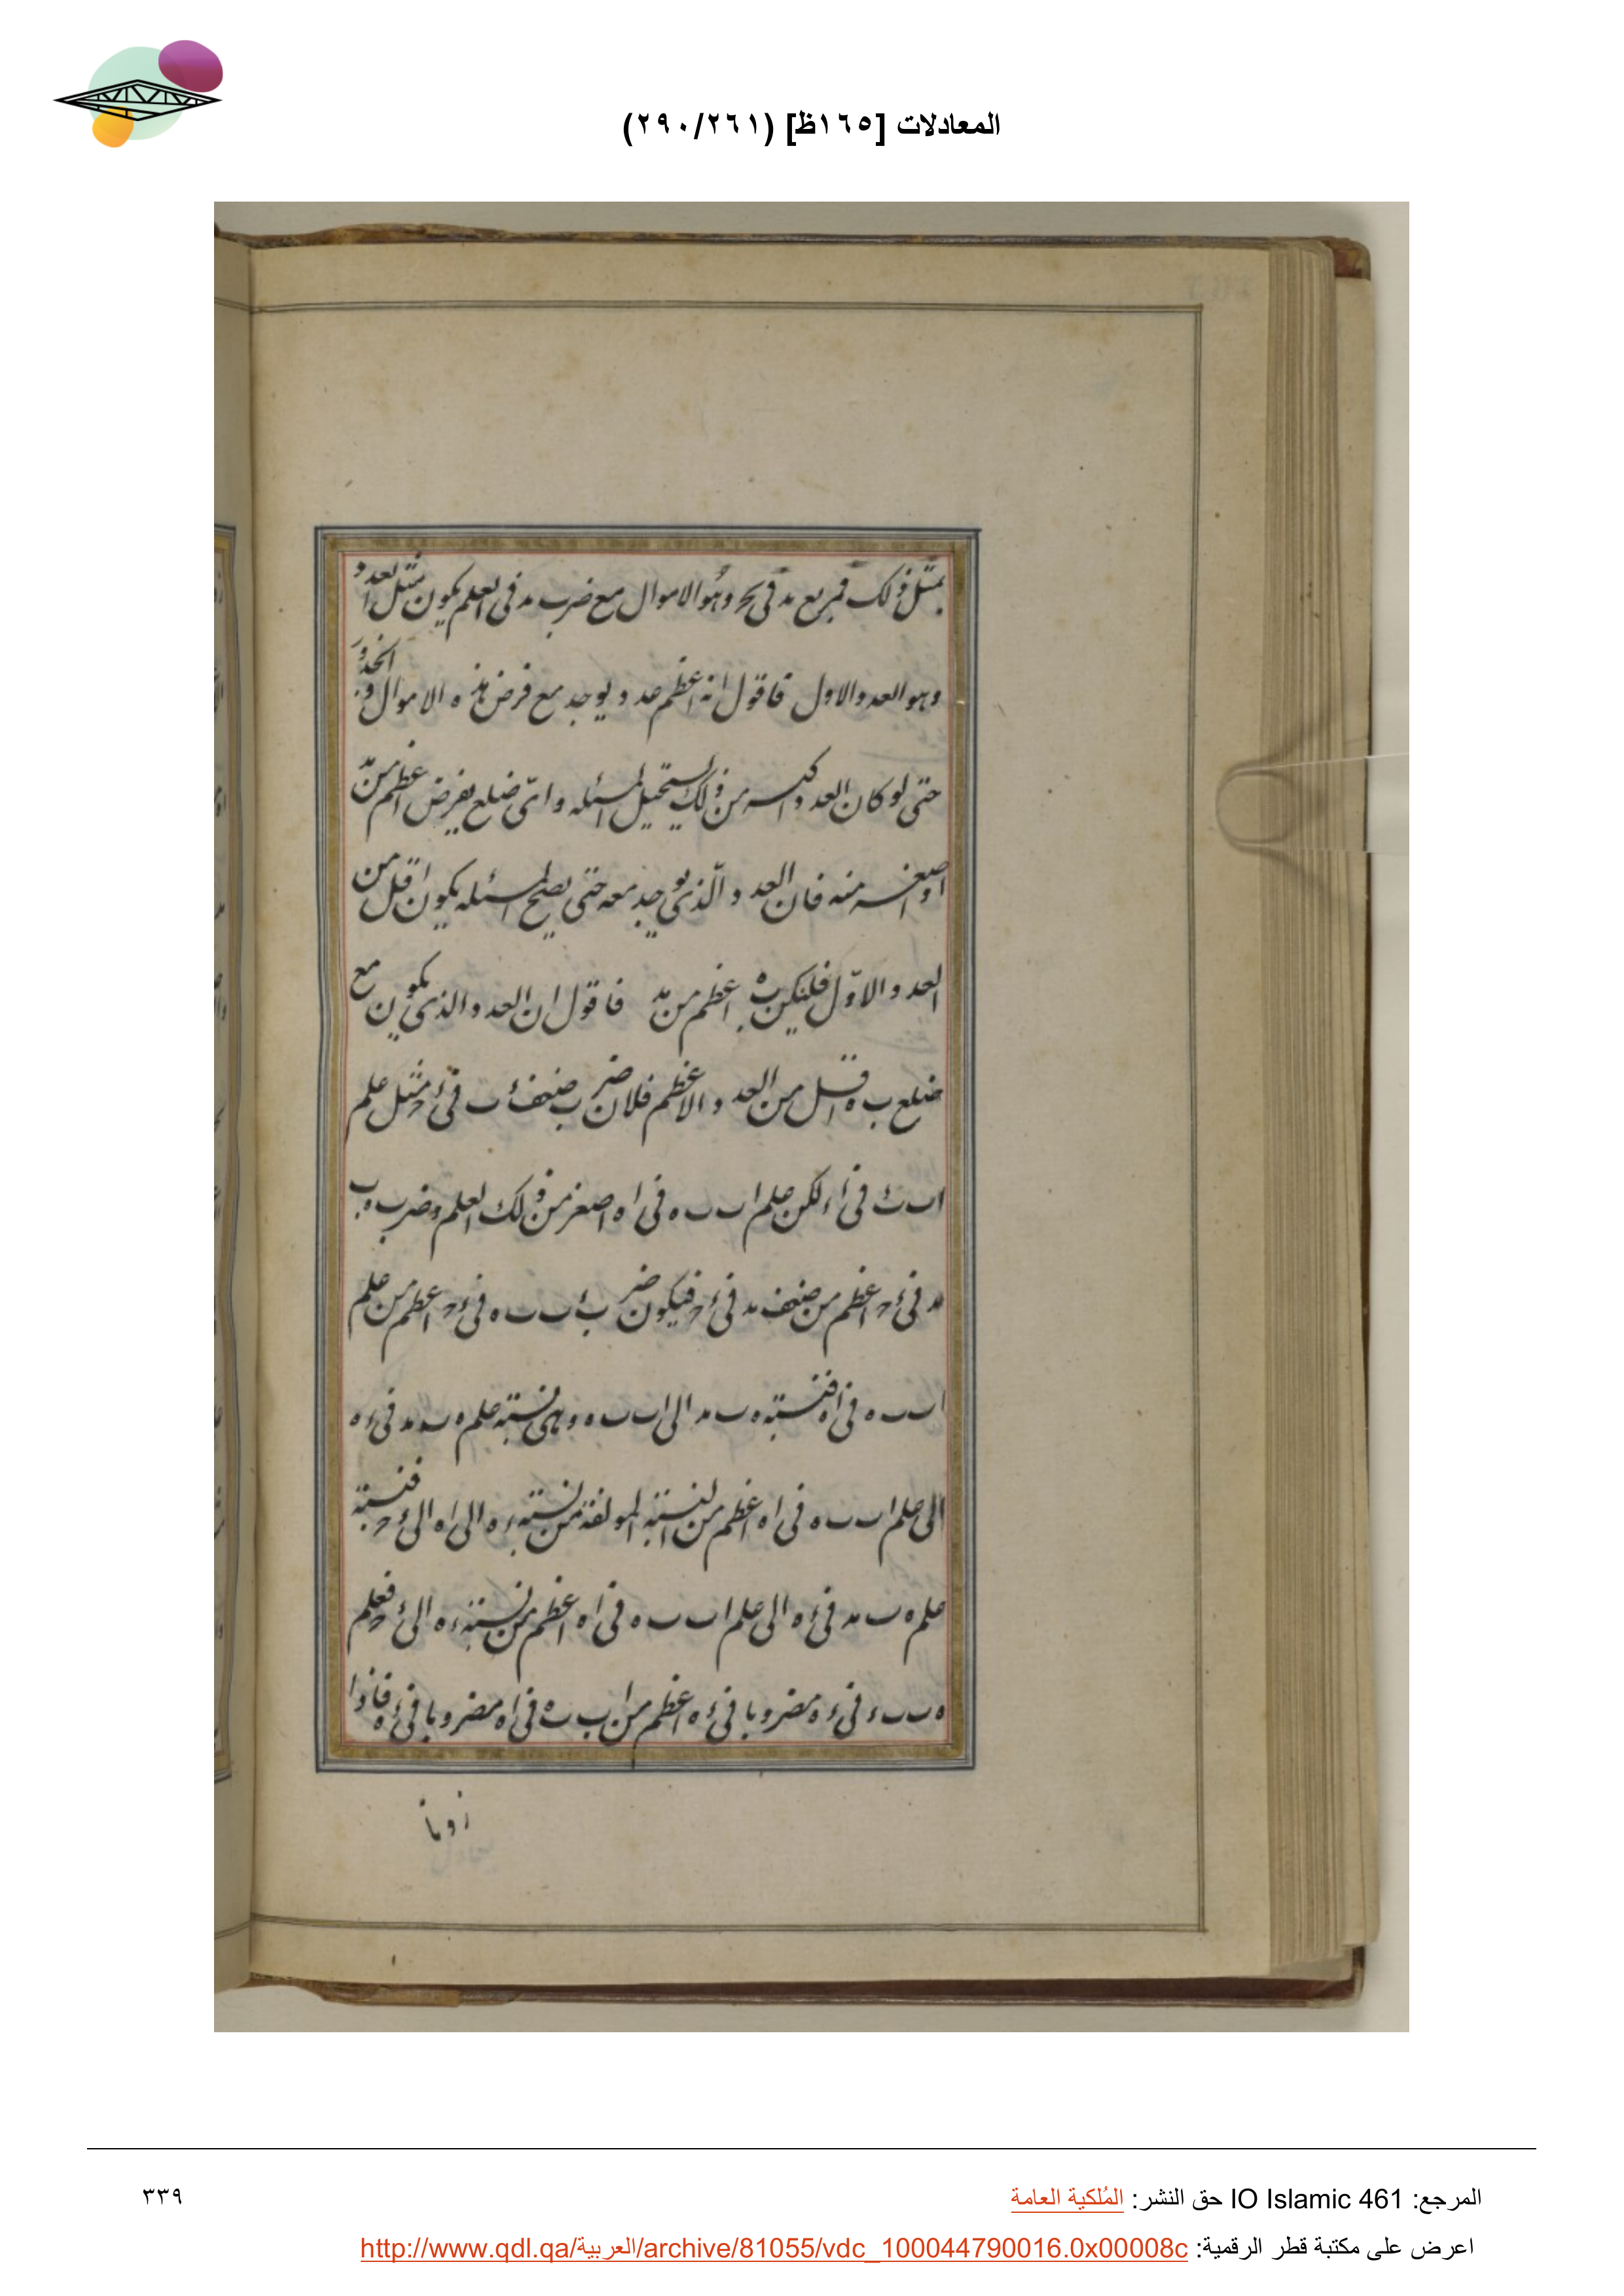 المعادلات [١٦٥ظ] (٢٩٠/٢٦١)
بمثل ذلك فمربع مد فى بح وهو الاموال مع ضرب مد فى العلم يكون مثل العدد
وهو العدد الاول فاقول انه اعظم عدد يوجد مع فرض هذه الاموال والجذور
حتى لو كان العدد اكبر من ذلك يستحيل المسئله واىّ ضلع يفرض اعظم من مد
او اصغر منه فان العدد الّذى يوجد معه حتى يصح المسئله يكون اقل من
العدد الاوّل فليكن ب ه اعظم من مد فاقول ان العدد الذى يكون مع
ضلع ب ه اقل من العدد الاعظم فلان ضرب ضعف ء ب فى ء ح مثل علم
ا ب ب ء فى ا ء لكن علم ا ب ب ه فى ا ه اصغر من ذلك العلم وضرب ه ب
مد فى ء ح اعظم من ضعف مد فى ء ح فيكون ضرب ء ب ب ه فى ء ح اعظم من علم
ا ب ب ه فى ا ه فنسبة ه ب مد الى ا ب ب ه وهى نسبة علم ه ب مد فى ء ه
الى علم ا ب ب ه فى ا ه اعظم من النسبة المولفة من نسبة ء ه الى ا ه الى ء ح فنسبة
علم ه ب مد فى ء ه الى علم ا ب ب ه فى ا ه اعظم من نسبة ء ه الى ء ح فعلم
ه ب ب ء فى ء ه مضروبا فى ء ه اعظم من ا ب ب ه فى ا ه مضروبا فى ء ح فاذا
زدنا
المرجع: IO Islamic 461 حق النشر: المُلكية العامة
٣٣٩
اعرض على مكتبة قطر الرقمية: http://www.qdl.qa/العربية/archive/81055/vdc_100044790016.0x00008c